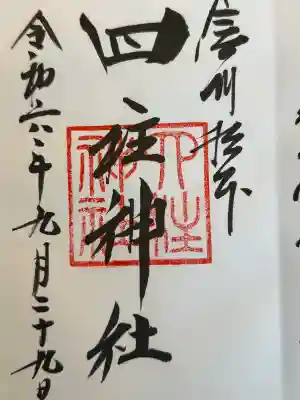 信州松本
四柱神社
令和六年九月二十九日